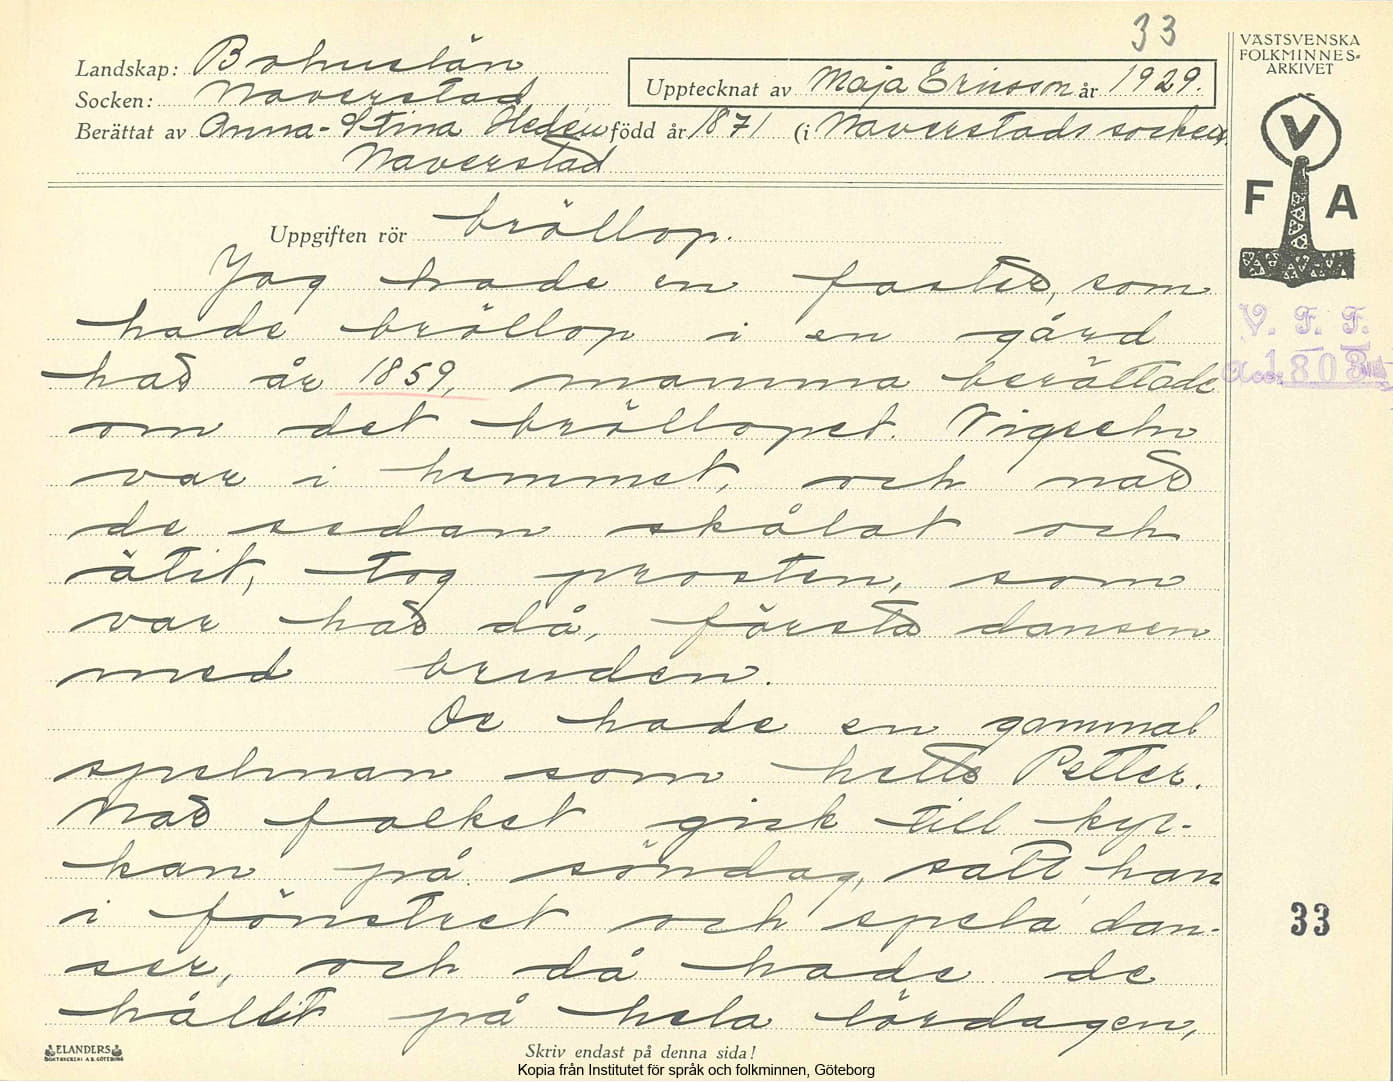 33
Landskap: Bohuslän
Socken: Naverstad
Upptecknat av Maja Ericson år 1929.
Berättat av Anna-Stina Hedén född år 1871 (i Naverstads socken,
Naverstad
Uppgiften rör bröllop.
Jag hade en faster, som
hade bröllop i en gård
här år 1859, mamma berättade
om det bröllopet. Vigseln
var i hemmet, och när
de sedan skålat och
ätit, tog prosten, som
var här då, första dansen
med bruden.
De hade en gammal
spelman som hette Petter.
När folket gick till kyr-
kan på söndag, satt han
i fönstret och spela' dan-
ser, och då hade de
hållit på hela lördagen,
Skriv endast på denna sida!
ELANDERS
BOKTRYCKERI A.B. GÖTEBORG
VÄSTSVENSKA
FOLKMINNES-
ARKIVET
V
F A
V. F. F.
Acc. 1803
33
Kopia från Institutet för språk och folkminnen, Göteborg